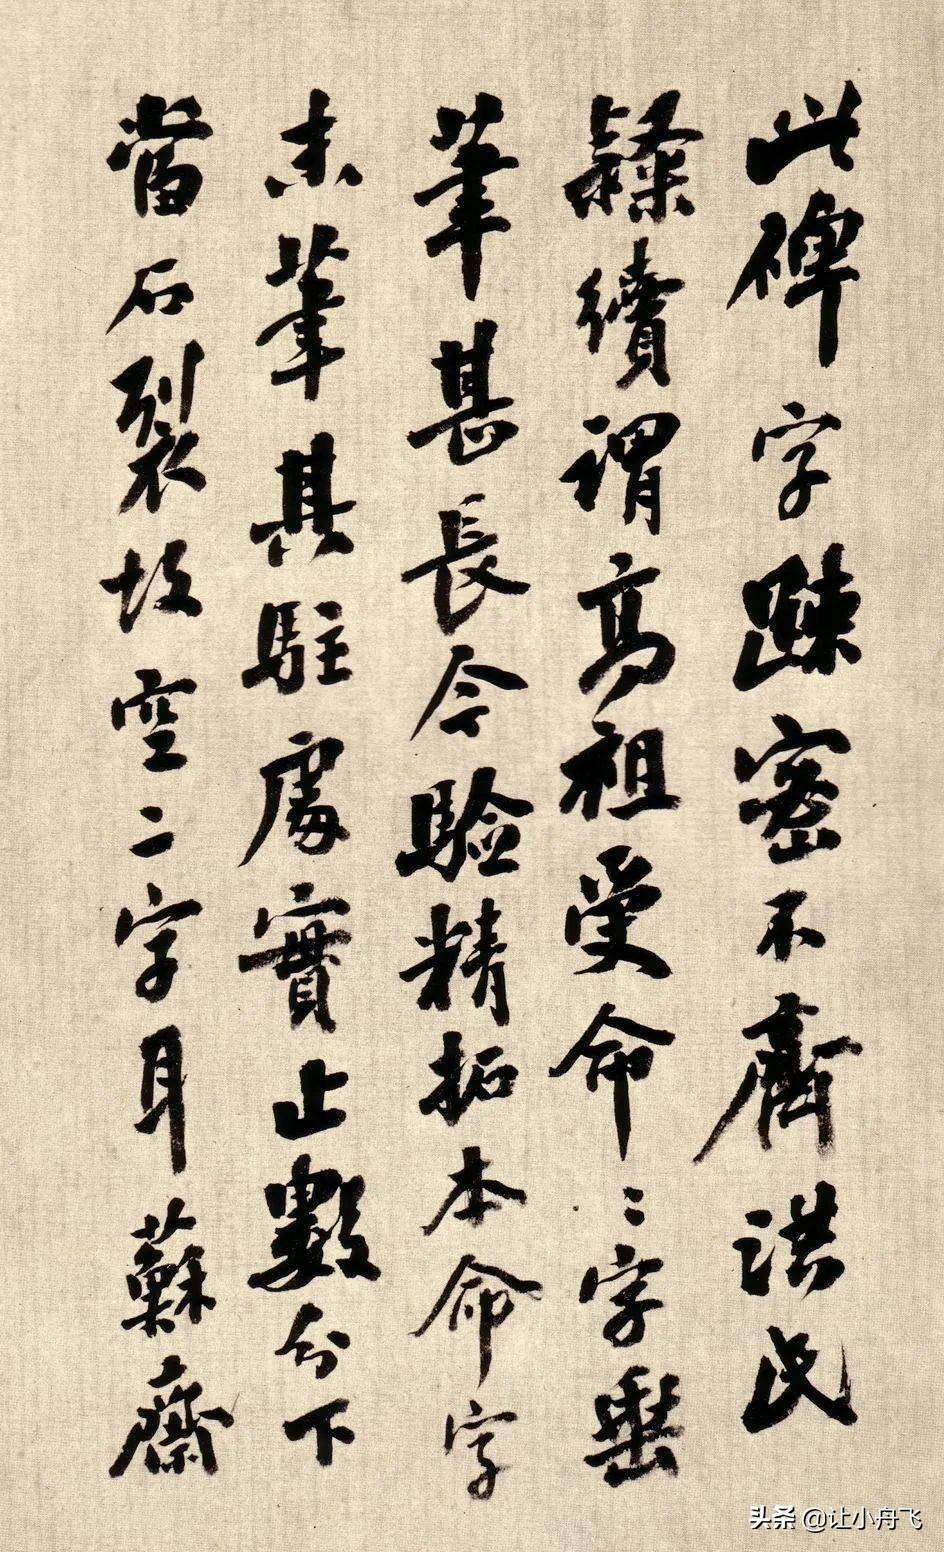 此碑字踈密不齊洪氏
隸續謂高祖受命〻字垂
筆甚長今驗精拓本命字
末筆其駐處實止數分下
當石裂故空二字耳蘇齋
头条 @让小舟飞